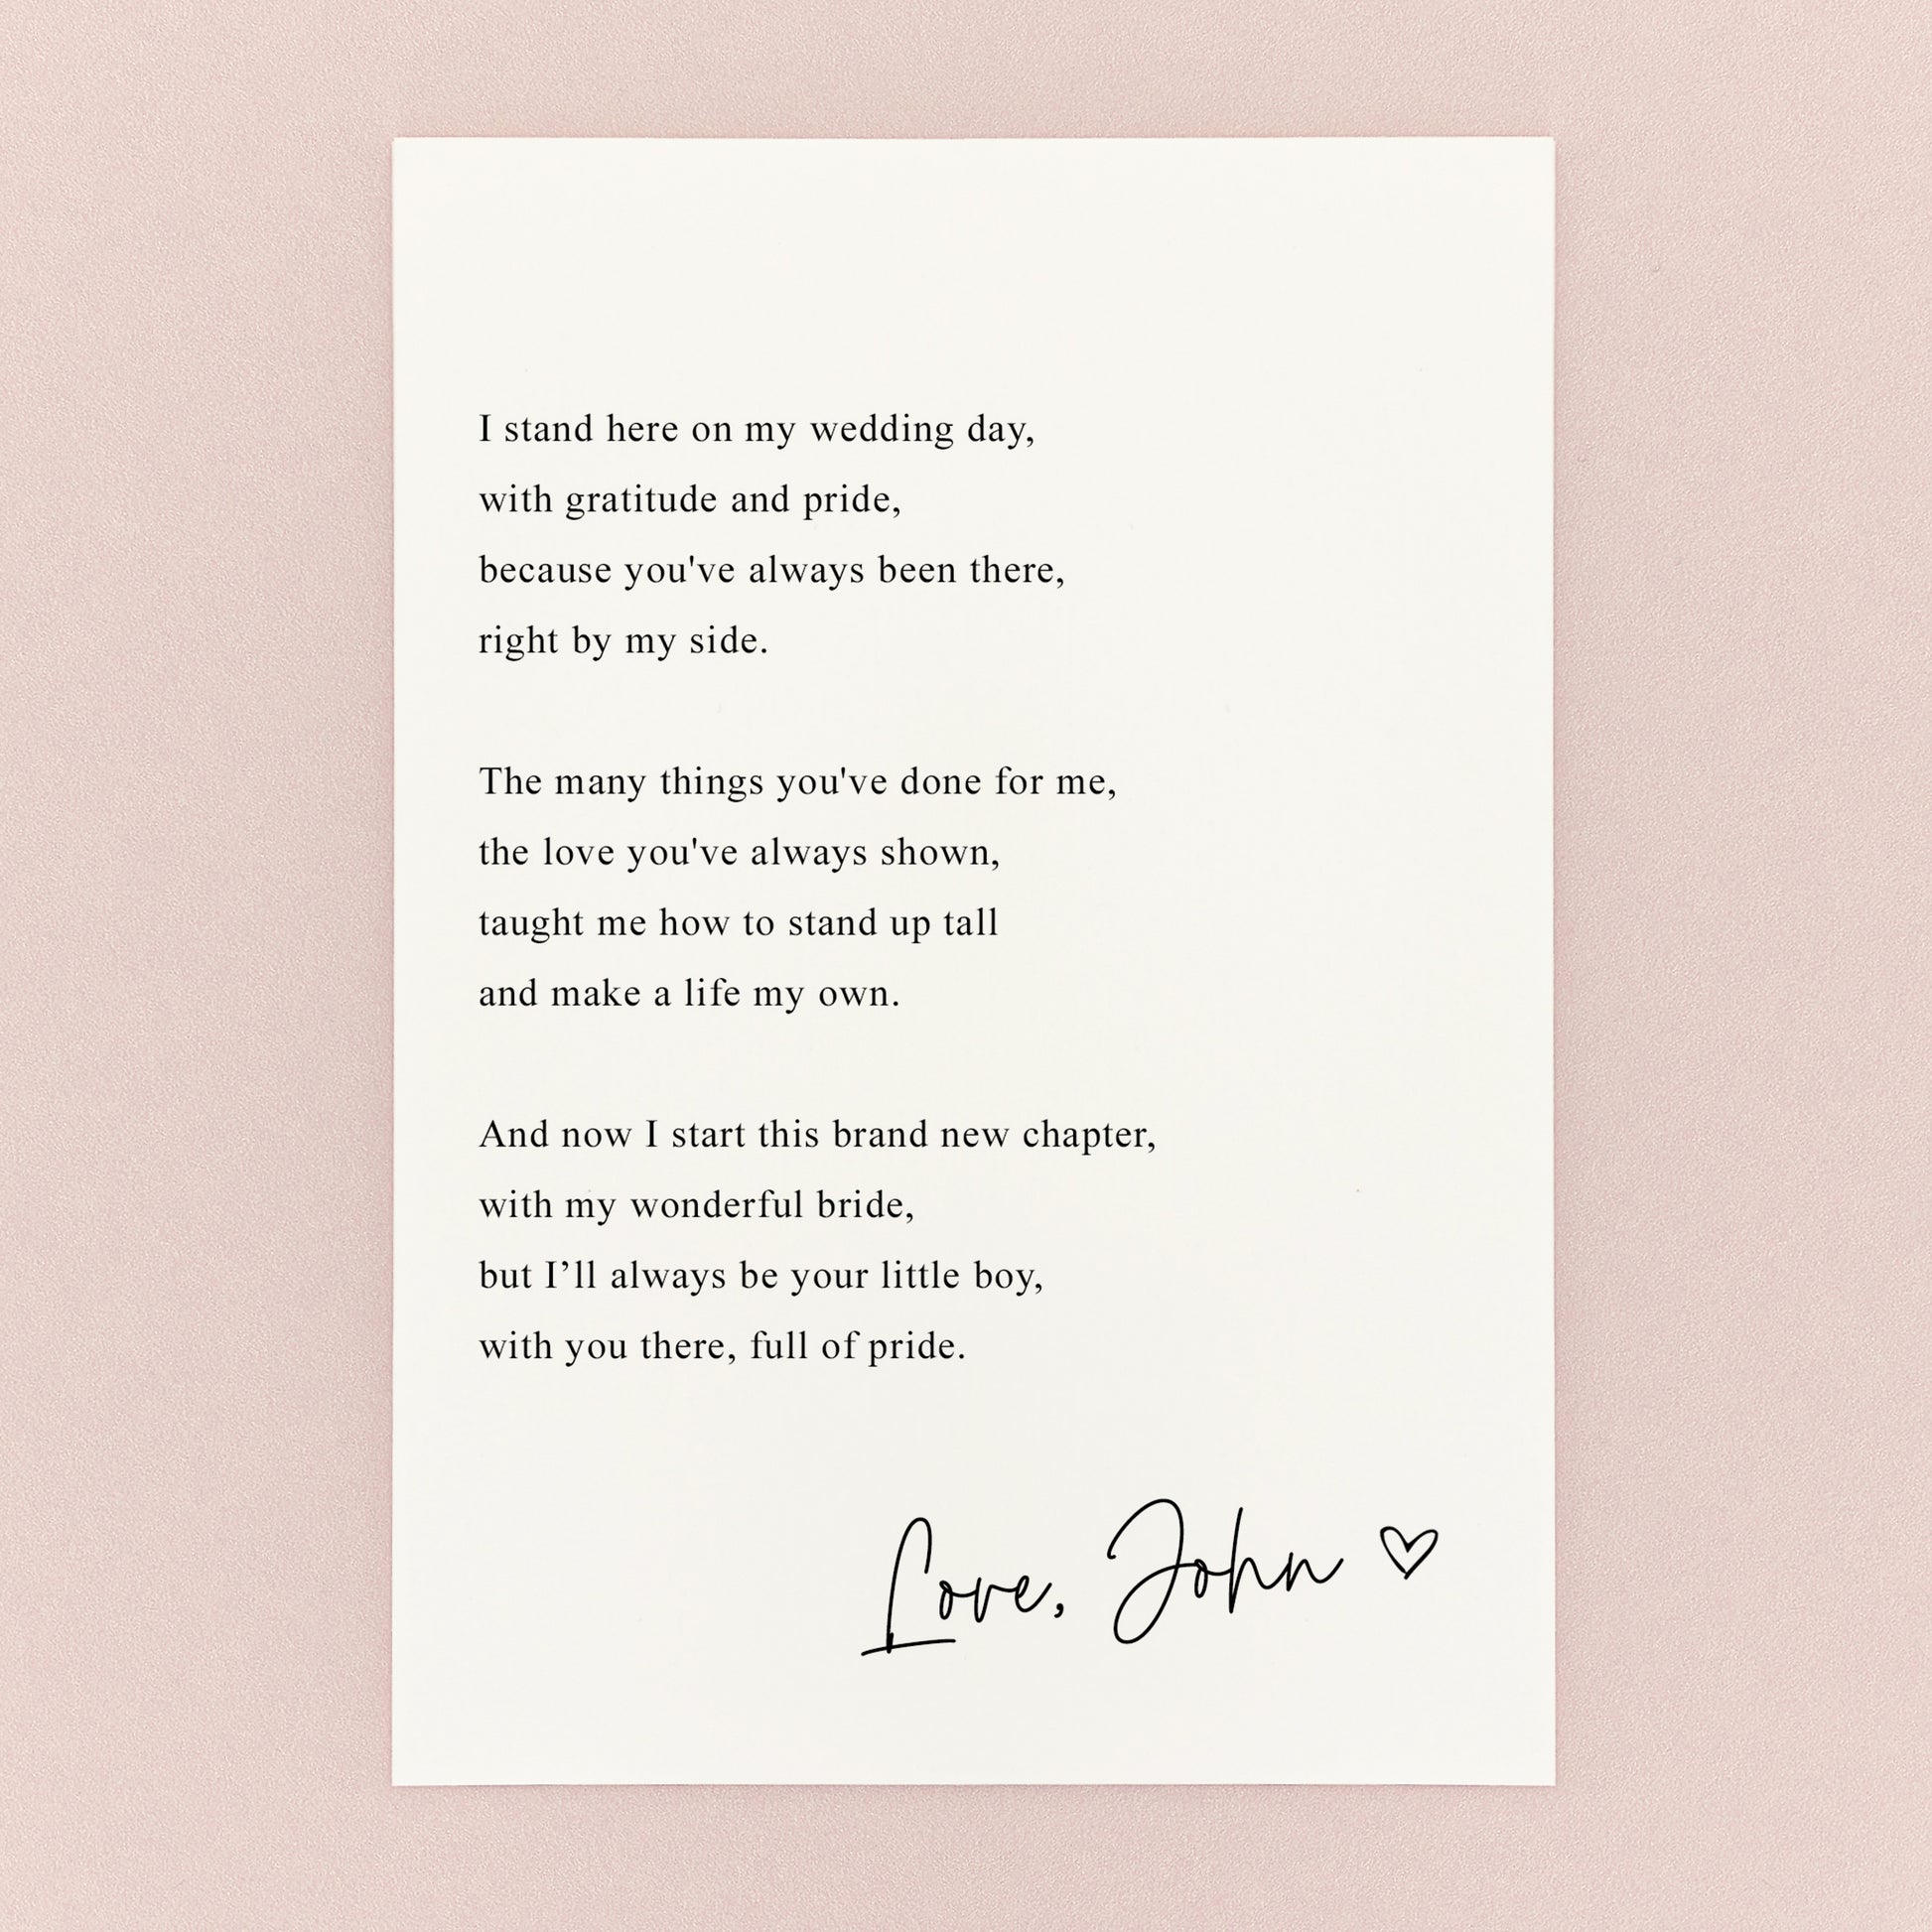 I stand here on my wedding day,
with gratitude and pride,
because you've always been there,
right by my side.

The many things you've done for me,
the love you've always shown,
taught me how to stand up tall
and make a life my own.

And now I start this brand new chapter,
with my wonderful bride,
but I’ll always be your little boy,
with you there, full of pride.

Love, John ♡